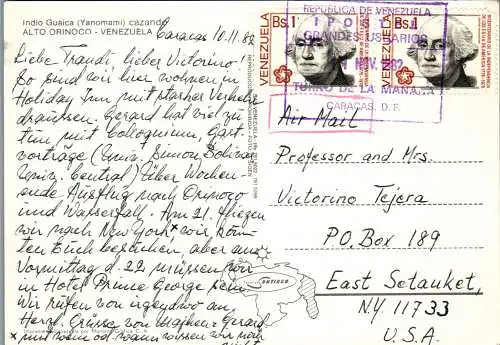 Indio Guaica (Yanomami) cazando
ALTO ORINOCO - VENEZUELA
Caracas 10.11.82
Liebe Traudi, lieber Victorino
So sind wir hier wohnen in
Holiday Inn mit starker Verkehr
draussen. Gerard hat viel zu
tun mit Colloquium, Gast-
vorträge (Univ. Simon Bolivar
Univ. Central) über Wochen-
ende Ausflug nach Orinoco
und Wasserfall. Am 21. fliegen
wir nach New York, x wir könn-
ten Euch besuchen, aber am
Vormittag d. 22 müssen wir
in Hotel Prince George sein.
Wir rufen von irgendwo an,
Herzl. Grüsse von Gerard
x mit wem od. wann wissen wir noch
nicht
REPUBLICA DE VENEZUELA
IPOSTEL
GRANDES USUARIOS
NOV. 1982
TURNO DE LA MAÑANA
CARACAS, D. F.
Bs.1
VENEZUELA
Bs.1
VENEZUELA
Air Mail
Professor and Mrs.
Victorino Tejera
P.O. Box 189
East Setauket,
N.Y. 11733
U.S.A.